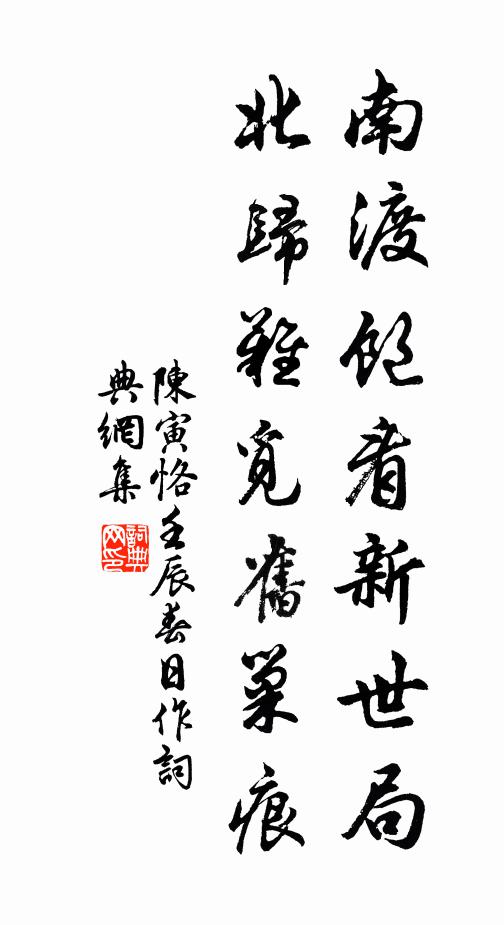 南渡飽看新世局
北歸難覓舊巢痕
陳寅恪壬辰春日作詞
典網集
詞典网印